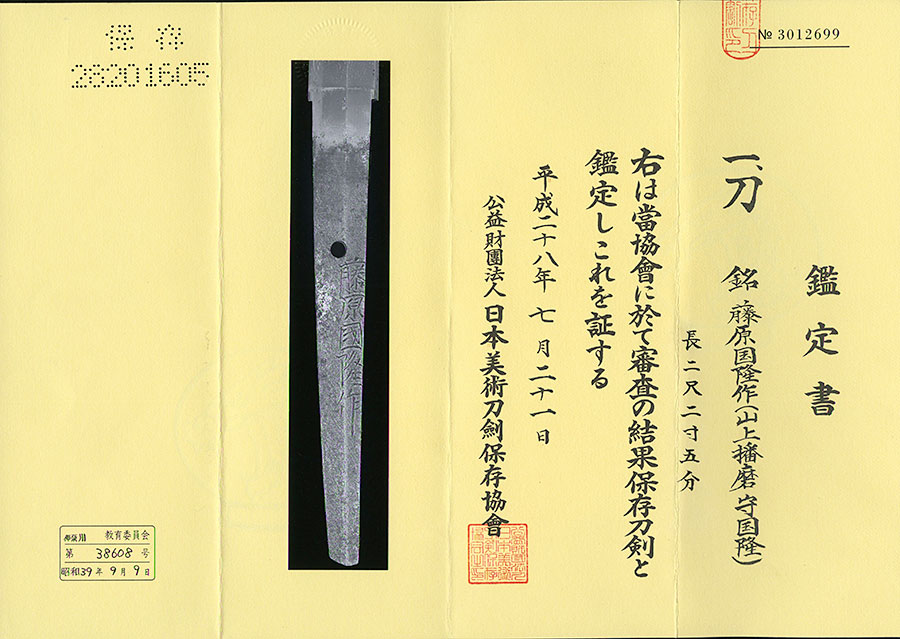 № 3012699
鑑定書
一、刀 銘 藤原国隆作(山上播磨守国隆)
長二尺二寸五分
右は當協會に於て審査の結果保存刀剣と
鑑定しこれを証する
平成二十八年七月二十一日
公益財團法人日本美術刀劍保存協會
藤原國隆作
保存
28201605
神奈川 教育委員会
第 38608 号
昭和39年9月9日